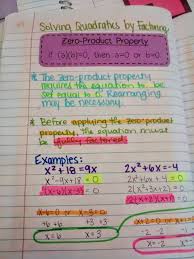 Solving Quadratics by Factoring
Zero-Product Property
If (a)(b)=0, then a=0 or b=0.
* The zero-product property
requires the equation to be
set equal to 0. Rearranging
may be necessary.
* Before applying the zero product
property, the equation must
be fully factored.
Examples:
x²+18=9x
2x²+6x=-4
x²-9x+18=0
2x²+6x+4=0
(x-6)(x-3)=0
2(x²+3x+2)=0
x-6=0 or x-3=0
+6 +6 +3 +3
x=6 x=3
x=-2 x=-1